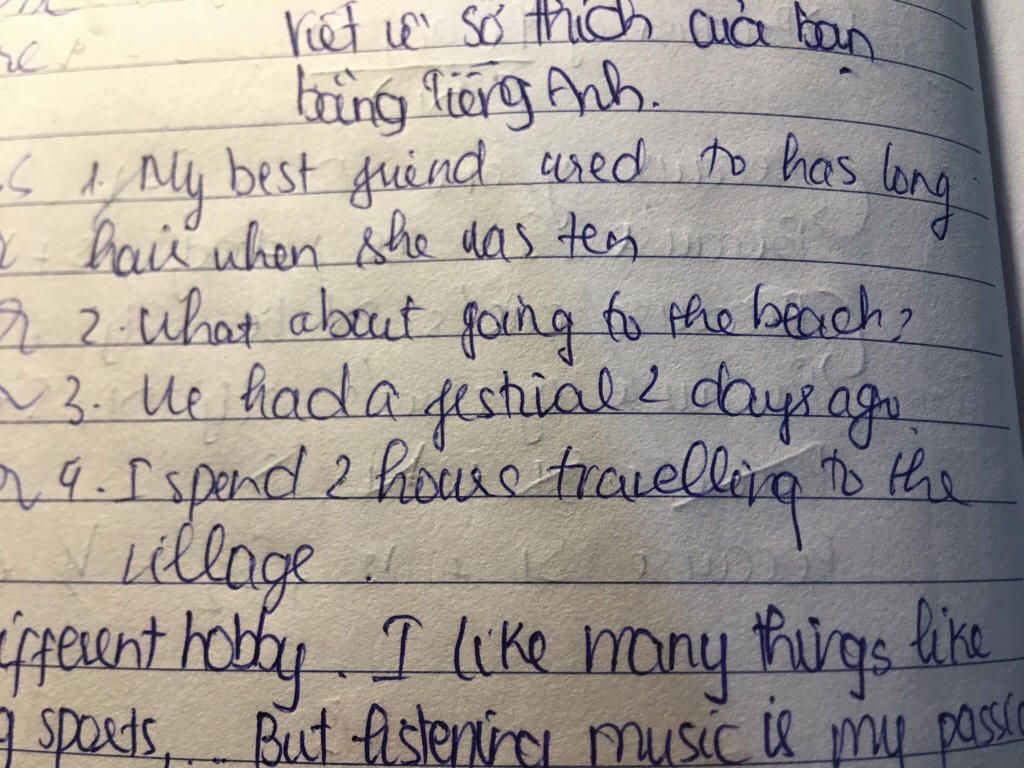 Viết về sở thích của bạn
bằng Tiếng Anh.
1. My best friend used to has long
hair when she was ten
2. What about going to the beach?
3. We had a festival 2 days ago.
4. I spend 2 hours travelling to the
village.
ifferent hobby. I like many things like
g sports,... But listening music is my passio